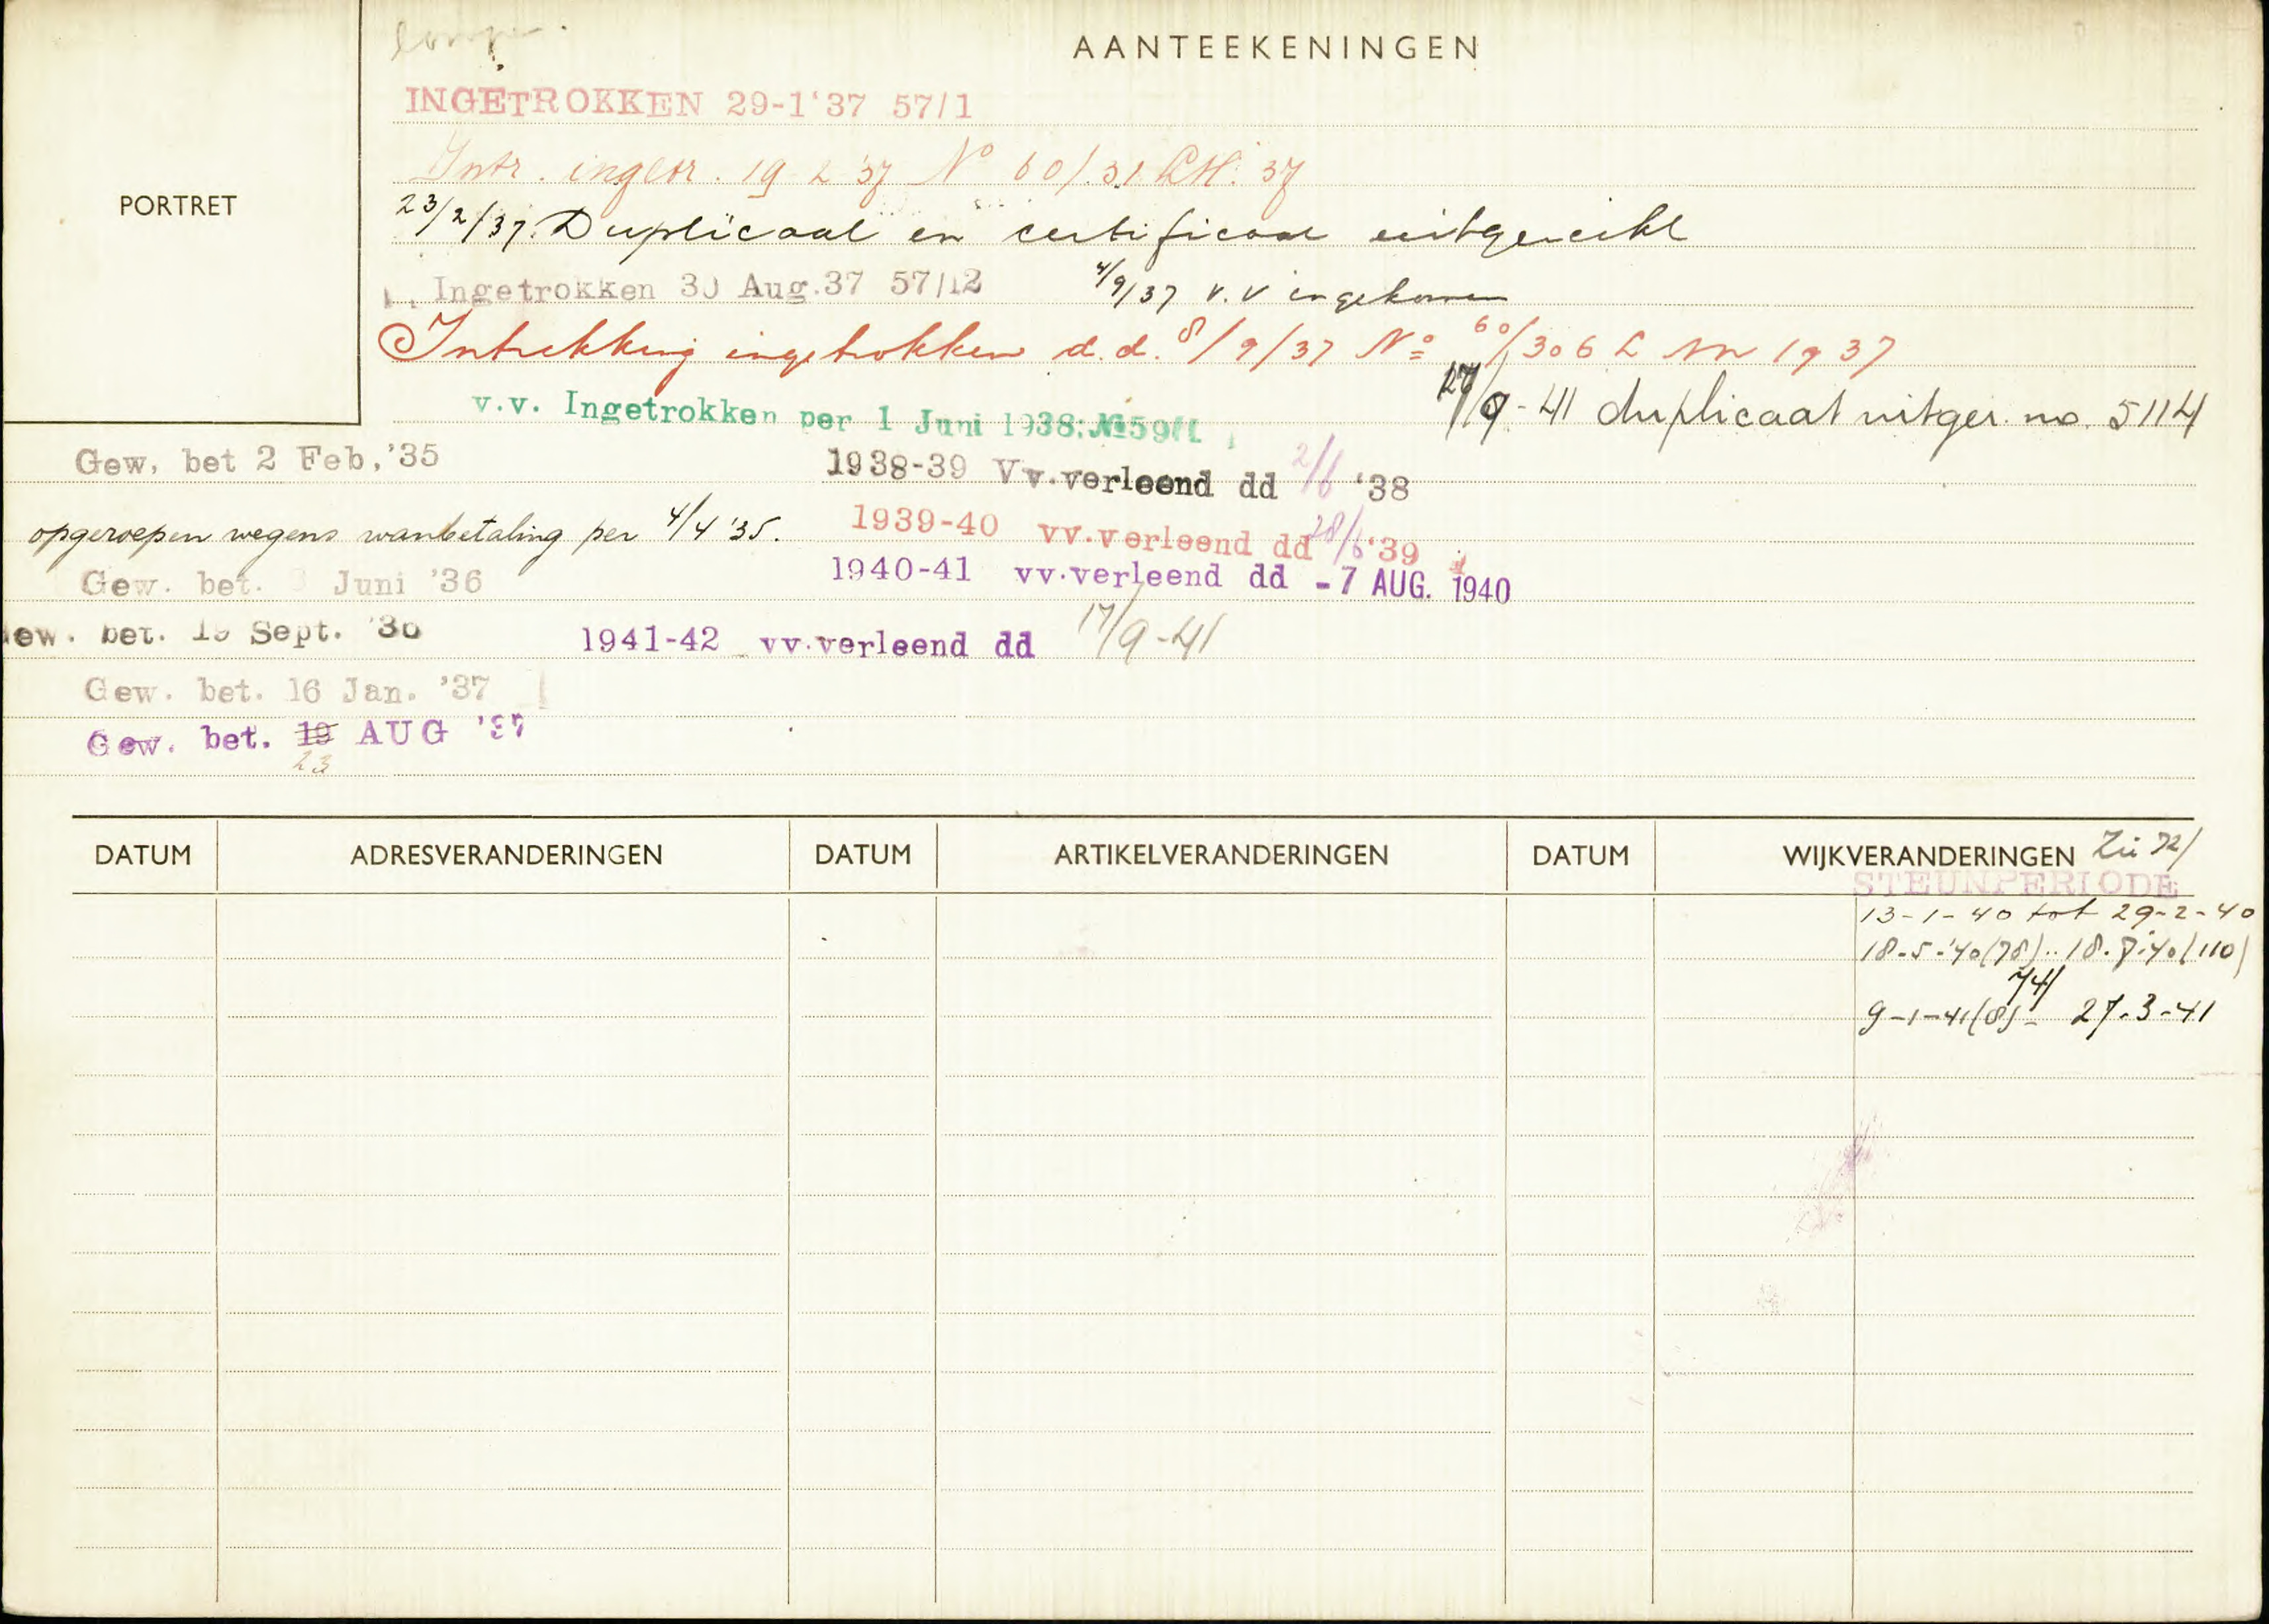 AANTEEKENINGEN
PORTRET
INGETROKKEN 29-1'37 57/1
Intr. ingetr. 19 2 '37 No 60/31 '37
23/2/37. Duplicaat en certificaat uitgereikt
Ingetrokken 30 Aug.37 57/12 4/9/37 v.v ingekomen
Intrekking ingetrokken d.d. 8/9/37 No 60/306 L M 1937
v.v. Ingetrokken per 1 Juni 1938: No 59/1
17/9-41 duplicaat uitger. no. 5114
Gew. bet 2 Feb,'35
1938-39 Vv.verleend dd 2/6 '38
opgeroepen wegens wanbetaling per 4/4 '35.
1939-40 vv.verleend dd 28/6 '39
Gew. bet. Juni '36
1940-41 vv.verleend dd -7 AUG. 1940
ew. bet. 15 Sept. '36
1941-42 vv.verleend dd 17/9-41
Gew. bet. 16 Jan. '37
Gew. bet. 19 AUG '37
23
DATUM ADRESVERANDERINGEN DATUM ARTIKELVERANDERINGEN DATUM WIJKVERANDERINGEN
STEUNPERIODE
13-1-40 tot 29-2-40
18-5-'40(78)..18.7.40(110)
74/
9-1-41(8)- 27-3-41